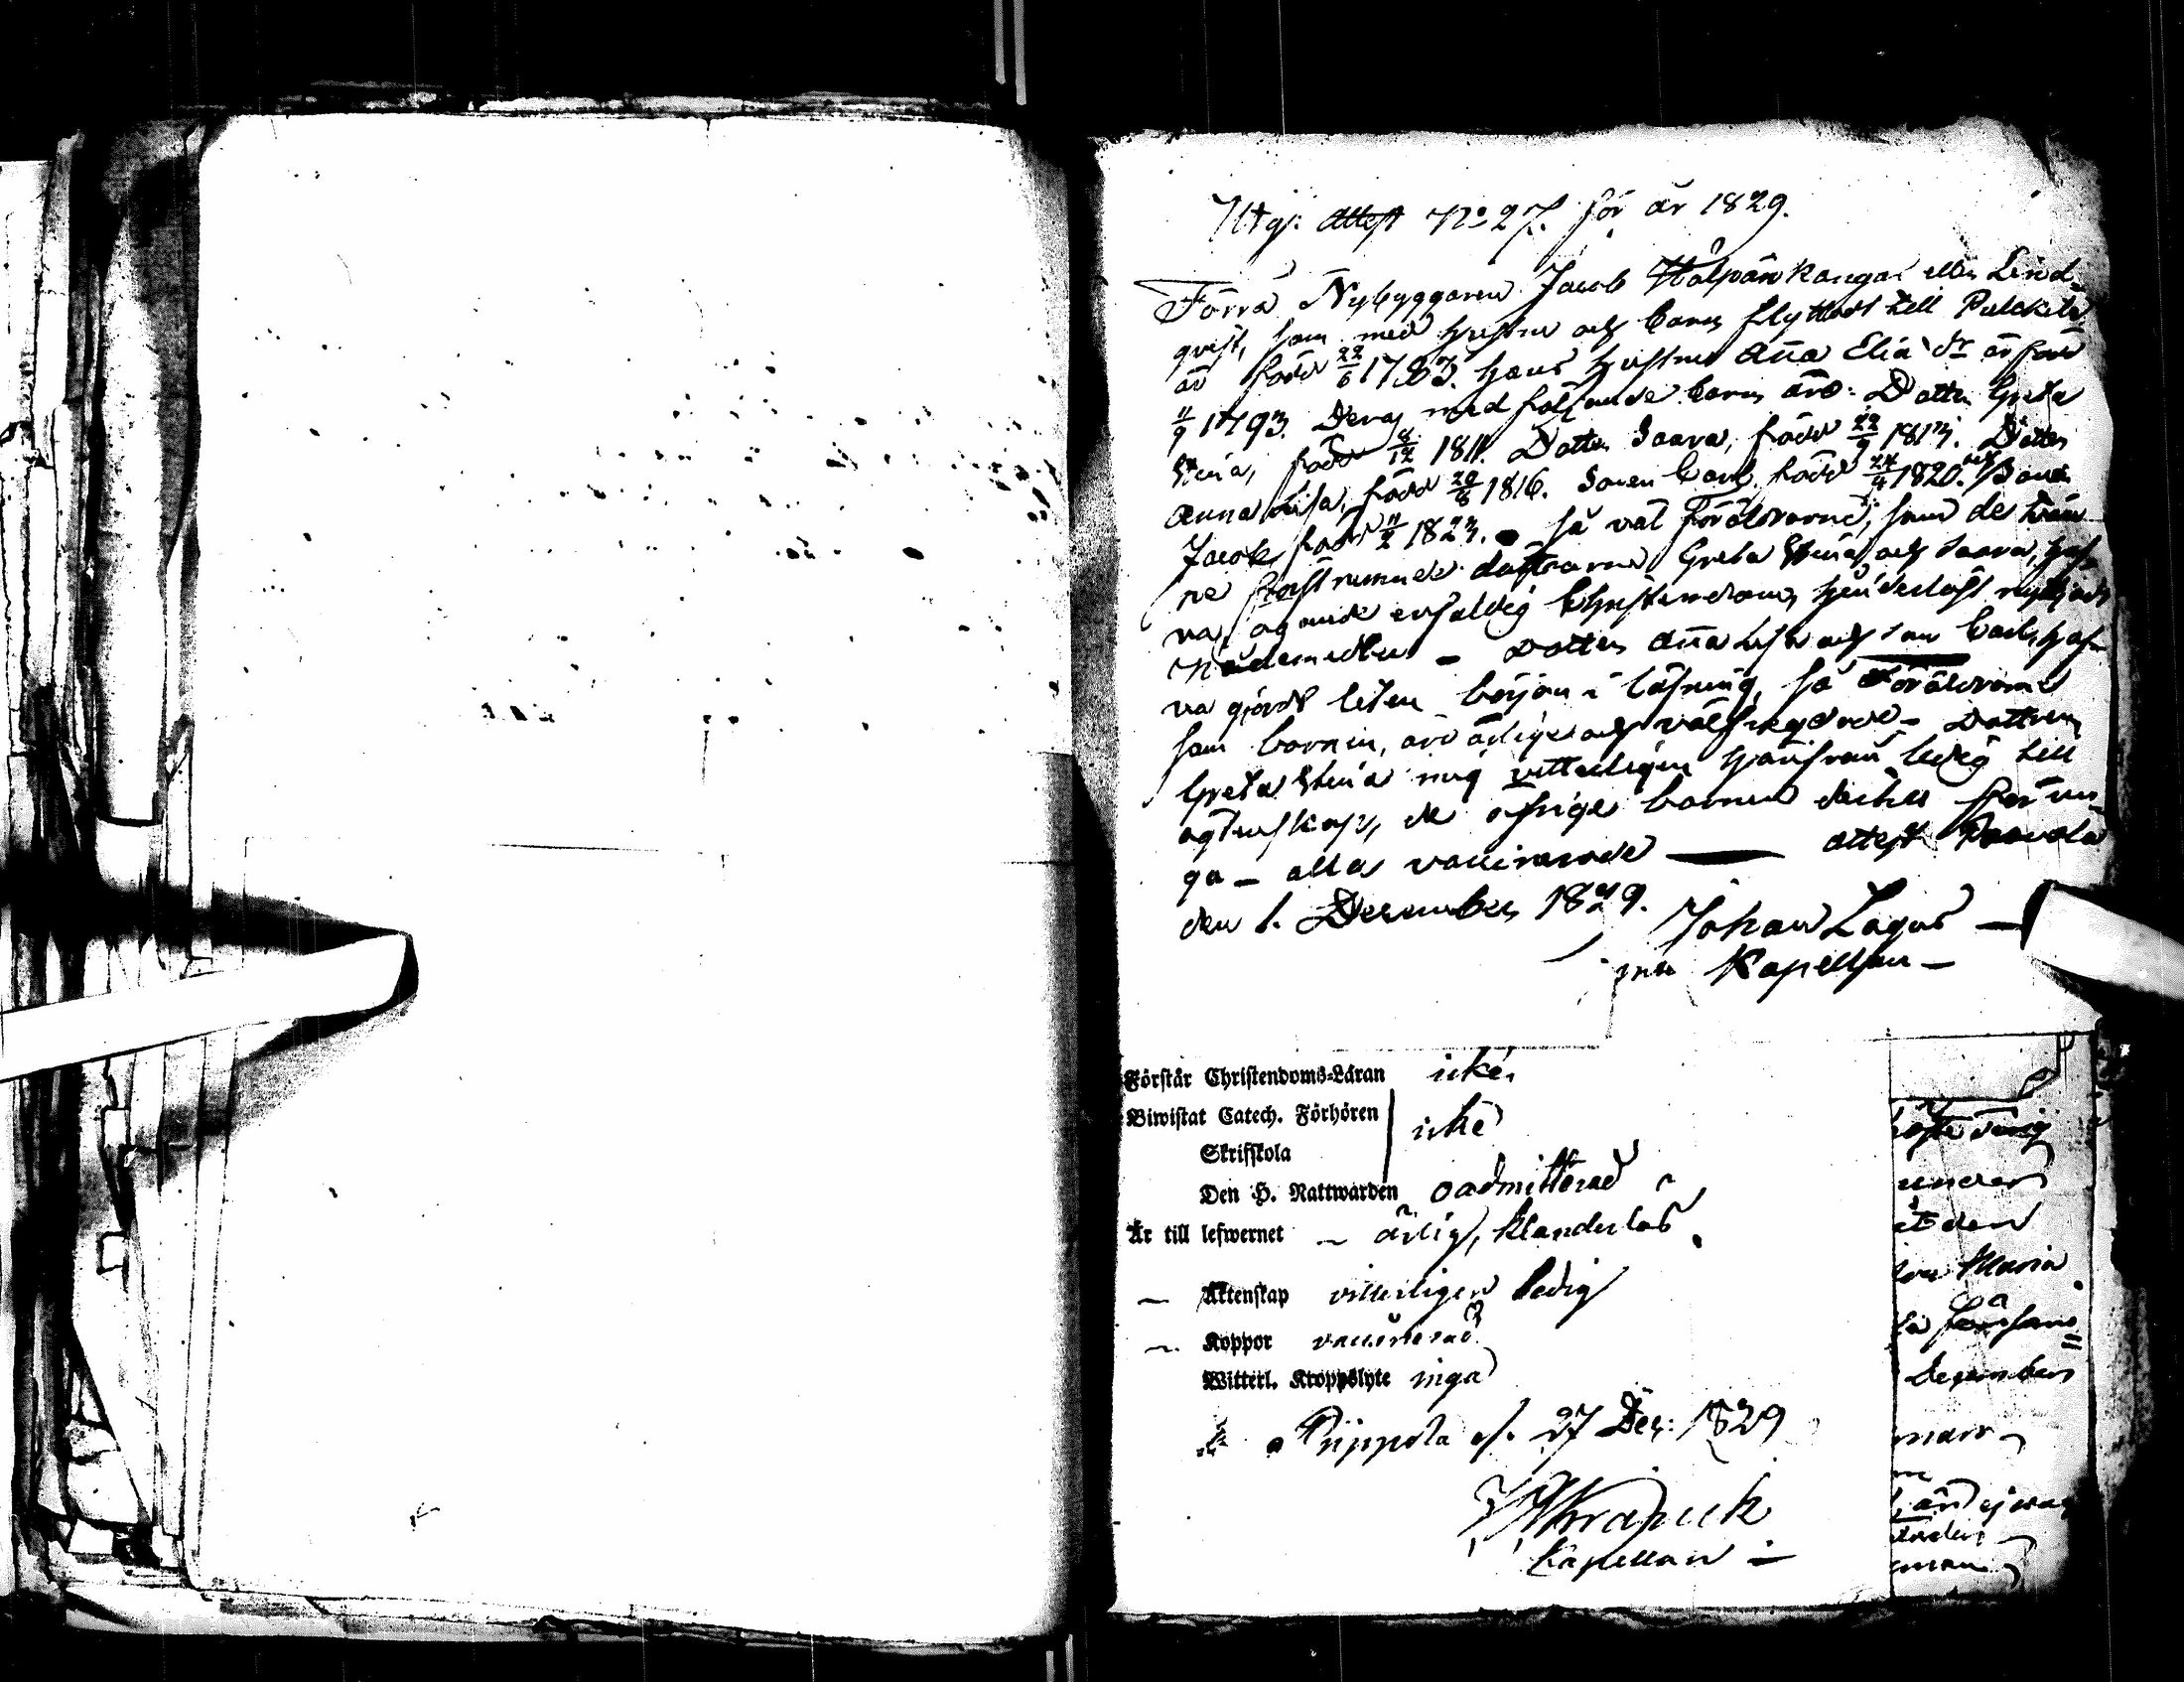 Utgi. Attest No 27. för år 1829.
Förra Nybyggaren Jacob Kangas eller Lind-
qvist, som med hustru och barn flyttadt till Pulkkila,
är född 22/6 1783. hans hustru Aña Elia dr är född
11/9 1793. Deras med följande barn äro: Dotter Greta
Stina, född 8/12 1811. Dotter Saara, född 22/9 1813. Dotter
Anna Lisa, född 29/6 1816. Sonen Carl, född 24/4 1820. och Sonen
Jacob, född 11/2 1823. Så väl Föräldrarne, som de
ne döttrarne Greta Stina och Saara, haf-
va, ägande enfaldig Christendom, hinderlöst nyttjadt
Nådemedlen - Dottren Aña Lisa och son Carl, haf-
va gjordt liten början i läsning, så Föräldrarne
som barnen, äro ärlige och välfregdade - Dottren
Greta Stina mig vitterligen härifrån ledig till
ägtenskap, de öfrige barnen dertill för un-
ga - alla vaccinerade — Attest Paavola
den 1. December 1829.
Johan Lagus —
Kapellan —
Förstår Christendoms-Läran icke.
Biwistat Catech. Förhören
icke
Skriftskola
Den H. Nattwarden oadmitterad
Är till lefwernet — ärlig, klanderlös.
— Äktenskap vitterligen ledig
— Koppor vaccinerad
Witterl. Kroppslyte inga
Pippola d. 27 Dec: 1829
Kapellan —
under
den
Maria
December